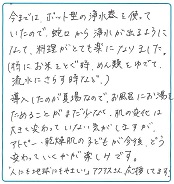 今までは、ポット型の浄水器を使って
いたので、蛇口から浄水が出るように
なって、料理がとても楽になりました。
(特にお米をとぐ時、めん類をゆでて、
流水にさらす時など。)
導入したのが夏場なので、お風呂にお湯を
ためることがまだ少なく、肌の変化は
大きく変わっていない気がしますが、
アトピー・乾燥肌の子どもが今後、どう
変わっていくかが楽しみです。
"人にも地球にもやさしい"アクアスさん応援してます。